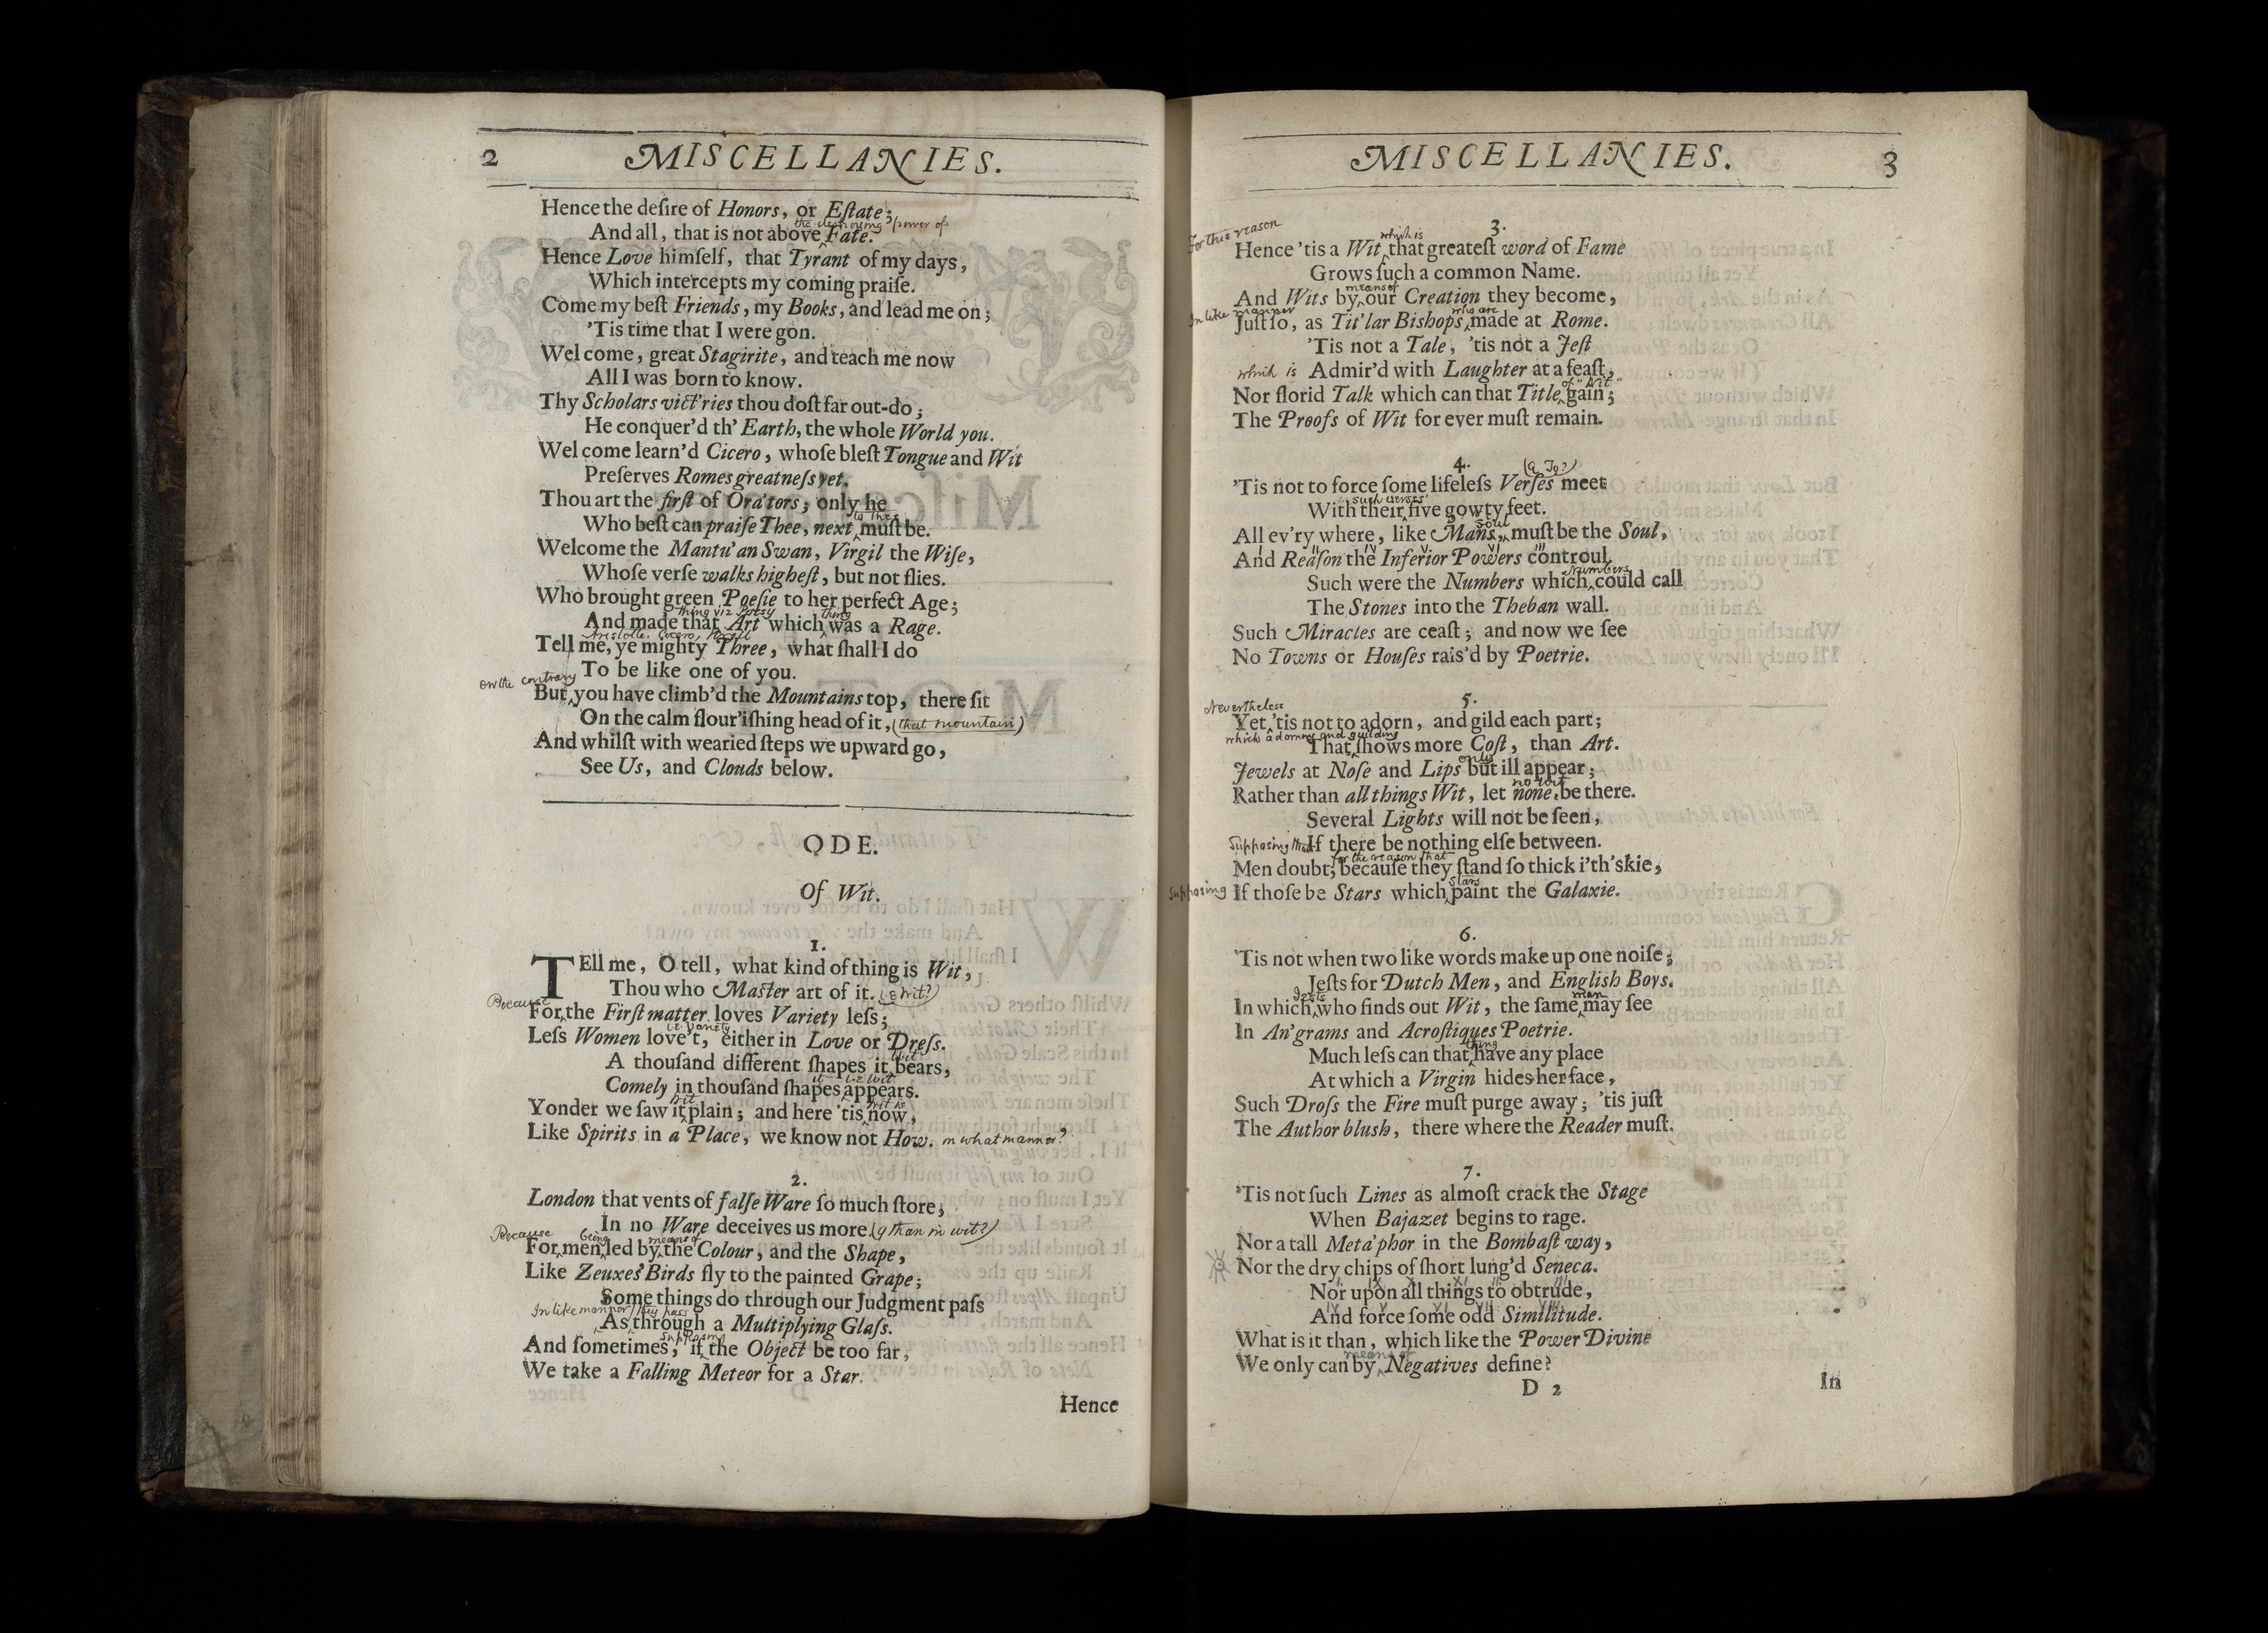 2 MISCELLANIES.
Hence the deſire of Honors, or Eſtate;
the destroying power of
And all, that is not above Fate.
Hence Love himſelf, that Tyrant of my days,
Which intercepts my coming praiſe.
Come my beſt Friends, my Books, and lead me on;
'Tis time that I were gon.
Welcome, great Stagirite, and teach me now
All I was born to know.
Thy Scholars vict'ries thou doſt far out-do;
He conquer'd th' Earth, the whole World you.
Welcome learn'd Cicero, whoſe bleſt Tongue and Wit
Preſerves Romes greatneſs yet.
Thou art the firſt of Ora'tors; only he
to thee
Who beſt can praiſe Thee, next muſt be.
Welcome the Mantu'an Swan, Virgil the Wiſe,
Whoſe verſe walks higheſt, but not flies.
Who brought green Poeſie to her perfect Age;
thing viz Poesy thing
And made that Art which was a Rage.
Aristotle, Cicero, Virgil
Tell me, ye mighty Three, what ſhall I do
To be like one of you.
on the contrary
But you have climb'd the Mountains top, there ſit
On the calm flour'iſhing head of it, (that mountain)
And whilſt with wearied ſteps we upward go,
See Us, and Clouds below.
ODE.
Of Wit.
1.
TEll me, O tell, what kind of thing is Wit,
Thou who Maſter art of it. (i.e. Wit?)
Because
For the Firſt matter loves Variety leſs;
i.e. Variety
Leſs Women love't, either in Love or Dreſs.
Wit
A thouſand different ſhapes it bears,
it i.e. Wit
Comely in thouſand ſhapes appears.
Wit Wit is
Yonder we ſaw it plain; and here 'tis now,
Like Spirits in a Place, we know not How. in what manner?
2.
London that vents of falſe Ware ſo much ſtore,
In no Ware deceives us more. (q than in wit?)
Because being means of
For men led by the Colour, and the Shape,
Like Zeuxes' Birds fly to the painted Grape;
Some things do through our Judgment paſs
In like manner they pass
As through a Multiplying Glaſs.
supposing
And ſometimes, if the Object be too far,
We take a Falling Meteor for a Star.
Hence
MISCELLANIES. 3
3.
For this reason which is
Hence 'tis a Wit that greateſt word of Fame
Grows ſuch a common Name.
means of
And Wits by our Creation they become,
In like manner who are
Juſt ſo, as Tit'lar Bishops made at Rome.
'Tis not a Tale, 'tis not a Jeſt
which is Admir'd with Laughter at a feaſt,
of "Wit"
Nor florid Talk which can that Title gain;
The Proofs of Wit for ever muſt remain.
4. (q To?)
'Tis not to force ſome lifeleſs Verſes meet
such verses'
With their five gowty feet.
soul
All ev'ry where, like Mans, muſt be the Soul,
I II IV V VI III
And Reaſon the Inferior Powers controul.
Numbers
Such were the Numbers which could call
The Stones into the Theban wall.
Such Miracles are ceaſt; and now we ſee
No Towns or Houſes rais'd by Poetrie.
5.
Nevertheless
Yet 'tis not to adorn, and gild each part;
which adorning and guilding
That ſhows more Coſt, than Art.
only
Jewels at Noſe and Lips but ill appear;
no wit
Rather than all things Wit, let none be there.
Several Lights will not be ſeen,
Supposing that If there be nothing elſe between.
for the reason that
Men doubt, becauſe they ſtand ſo thick i'th' skie,
stars
supposing If thoſe be Stars which paint the Galaxie.
6.
'Tis not when two like words make up one noiſe;
Jeſts for Dutch Men, and Engliſh Boys.
Jests man
In which who finds out Wit, the ſame may ſee
In An'grams and Acroſtiques Poetrie.
thing
Much leſs can that have any place
At which a Virgin hides her face,
Such Droſs the Fire muſt purge away; 'tis juſt
The Author bluſh, there where the Reader muſt.
7.
'Tis not ſuch Lines as almoſt crack the Stage
When Bajazet begins to rage.
Nor a tall Meta'phor in the Bombaſt way,
Nor the dry chips of ſhort lung'd Seneca.
I IX X XI II III
Nor upon all things to obtrude,
IV V VI VII VIII
And force ſome odd Similitude.
What is it than, which like the Power Divine
means of
We only can by Negatives define?
D 2 In